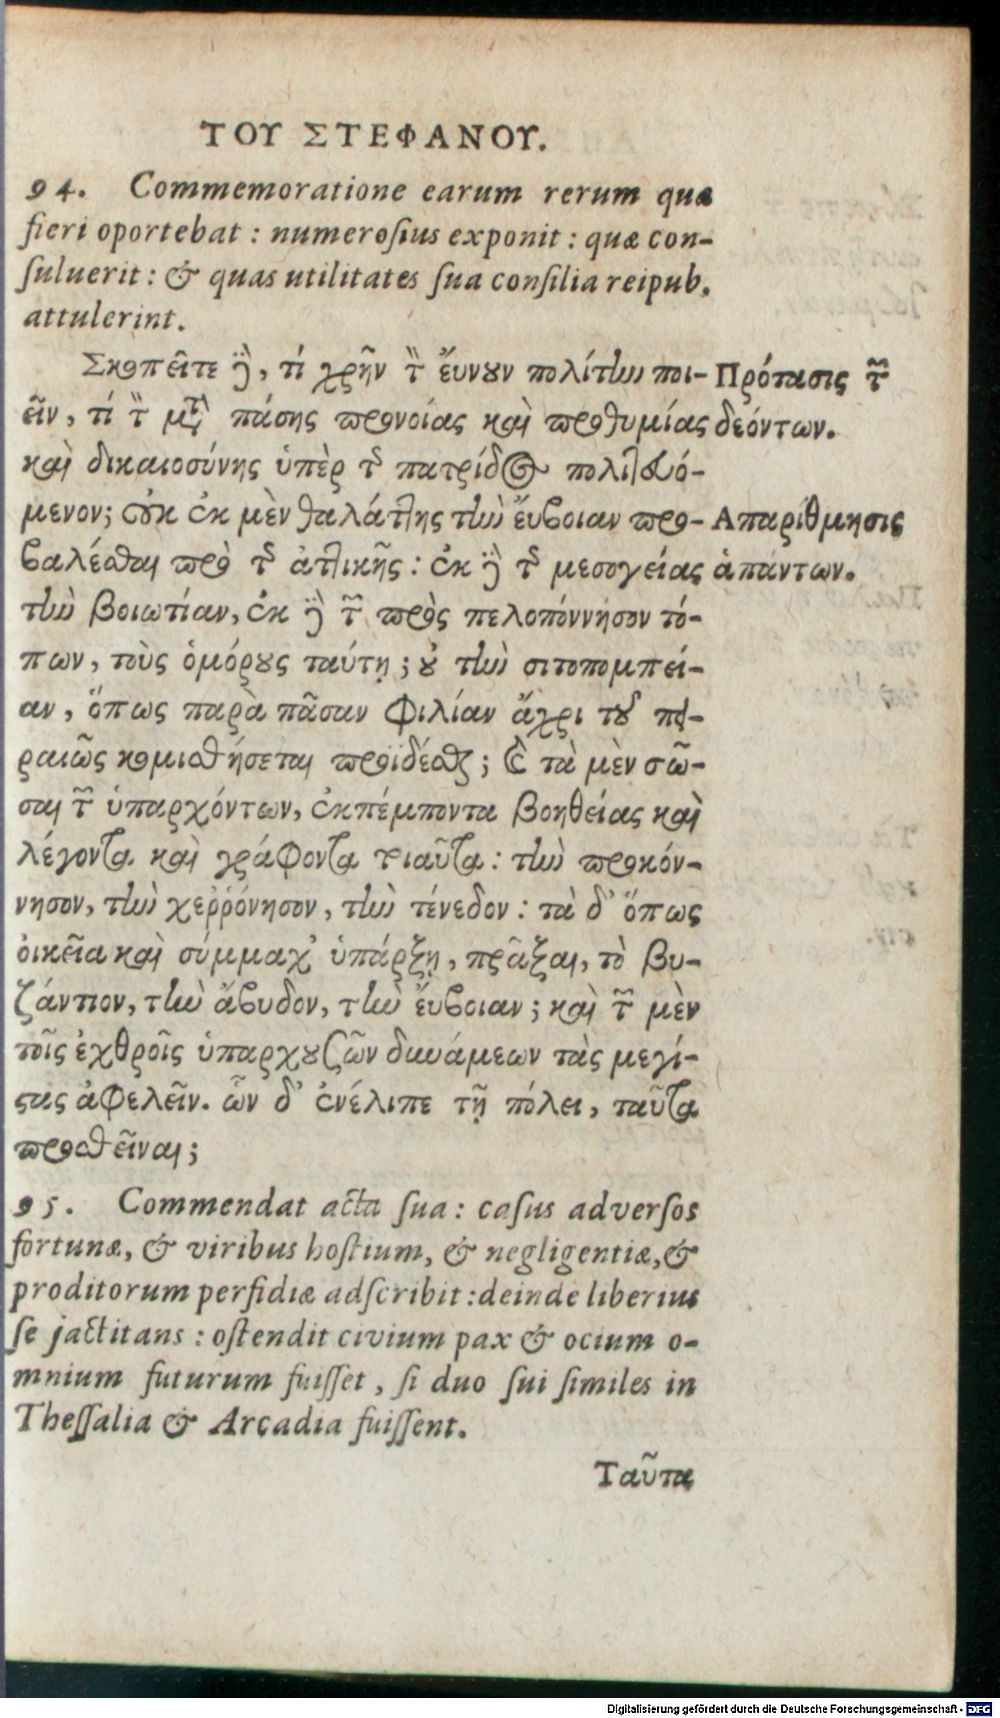 ΤΟΥ ΣΤΕΦΑΝΟΥ.
94. Commemoratione earum rerum quæ
fieri oportebat : numerosius exponit : quæ con-
suluerit : & quas utilitates sua consilia reipub.
attulerint.
Σκοπεῖτε δὲ, τί χρῆν τὸν ἔυνουν πολίτην ποι-
εῖν, τί τὸν μετὰ πάσης προνοίας καὶ προθυμίας
καὶ δικαιοσύνης ὑπὲρ τῆς πατρίδος πολιτευό-
μενον; οὐκ ἐκ μὲν θαλάττης τὴν ἔυβοιαν προ-
βαλέσθαι πρὸ τῆς ἀττικῆς : ἐκ δὲ τῆς μεσογείας
τὴν βοιωτίαν, ἐκ δὲ τῶν πρὸς πελοπόννησον τό-
πων, τοὺς ὁμόρους ταύτῃ; οὐ τὴν σιτοπομπεί-
αν, ὅπως παρὰ πᾶσαν φιλίαν ἄχρι τοῦ πει-
ραιῶς κομισθήσεται προϊδέσθαι; καὶ τὰ μὲν σῶ-
σαι τῶν ὑπαρχόντων, ἐκπέμποντα βοηθείας καὶ
λέγοντα καὶ γράφοντα τοιαῦτα : τὴν προκόν-
νησον, τὴν χεῤῥόνησον, τὴν τένεδον : τὰ δ' ὅπως
ὀικεῖα καὶ σύμμαχ' ὑπάρξῃ, πρᾶξαι, τὸ βυ-
ζάντιον, τὴν ἄβυδον, τὴν ἔυβοιαν; καὶ τῶν μὲν
τοῖς ἐχθροῖς ὑπαρχουσῶν δυνάμεων τὰς μεγί-
στας ἀφελεῖν. ὧν δ' ἐνέλιπε τῇ πόλει, ταῦτα
προσθεῖναι;
Πρότασις τῶν
δεόντων.
Απαρίθμησις
ἁπάντων.
95. Commendat acta sua : casus adversos
fortunæ, & viribus hostium, & negligentiæ, &
proditorum perfidiæ adscribit : deinde liberius
se jactitans : ostendit civium pax & ocium o-
mnium futurum fuisset, si duo sui similes in
Thessalia & Arcadia fuissent.
Ταῦτα
Digitalisierung gefördert durch die Deutsche Forschungsgemeinschaft - DFG